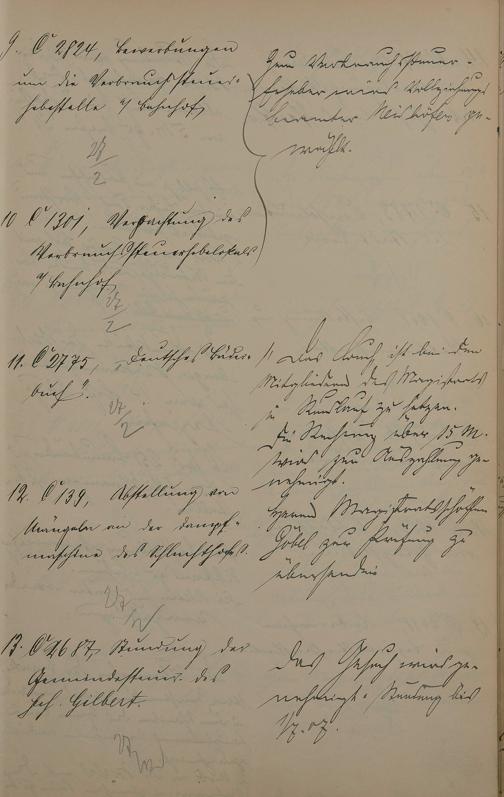 9. C 2824, Bewerbungen
um die Verbrauchssteuer-
hebestelle a/ Bahnhof,
Zum Verbrauchssteuer-
heber wird Vollziehungs
beamter ge-
wählt.
10 C 1301, Verpachtung des
Verbrauchssteuerhebelokals
a/ Bahnhof,
11. C 2775, "Deutsches Bäder-
buch".
1/ Das Buch ist bei den
Mitgliedern des Magistrats
in Umlauf zu setzen.
Die Rechnung über 15 M.
wird zur Auszahlung ge-
nehmigt.
12. C 139, Abstellung von
Mängeln an der Dampf-
maschine des Schlachthofes.
Herrn Magistratsschöffen
Göbel zur Prüfung zu
übersenden
13. C 2687, Stundung der
Gemeindesteuer des
Joh. Gilbert.
Das Gesuch wird ge-
nehmigt. Stundung bis
1/7.07.